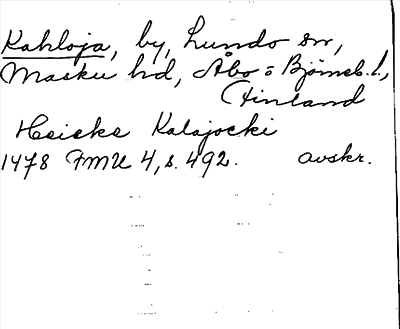 Kahloja, by, Lundo sn,
Masku hd, Åbo = Björneb. l.,
Finland
Heicke Kalajocki
1478 FMU 4, s. 492. avskr.